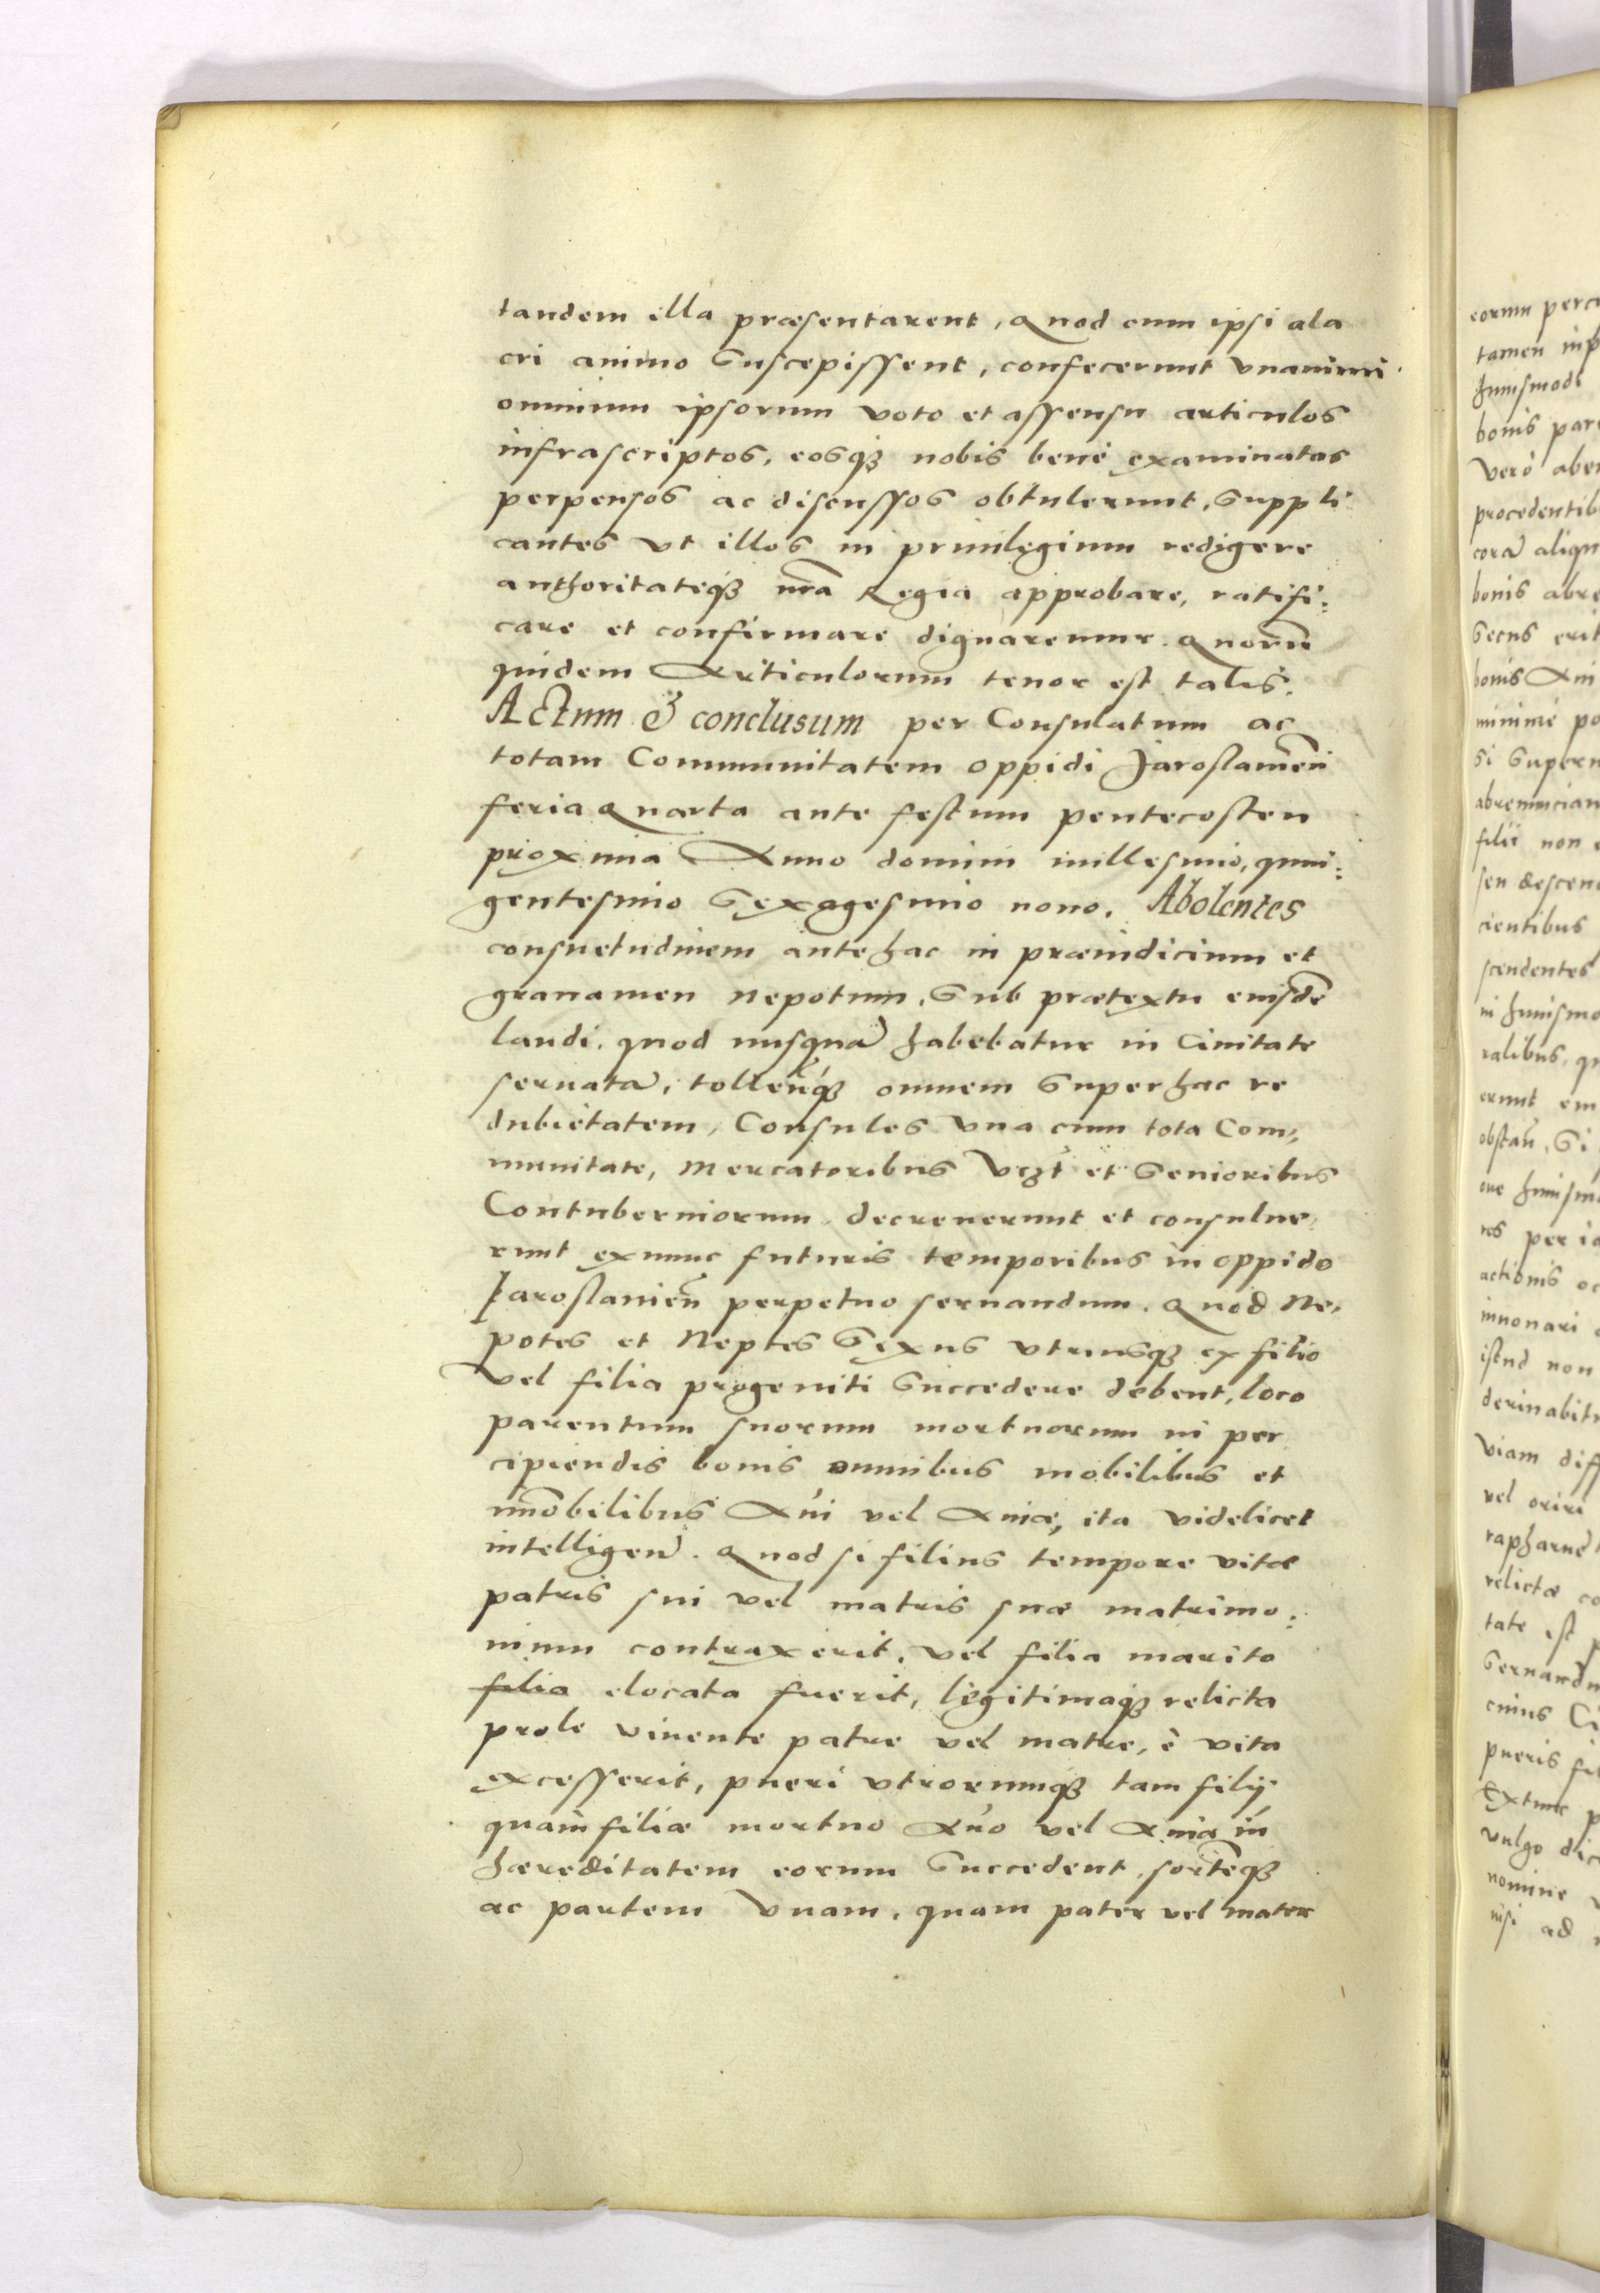 tandem illa præsentarent, Quod cum ipsi ala
cri animo Suscepissent, confecerunt vnanimi
omnium ipsorum voto et assensu articulos
infrascriptos, eosqꝫ nobis benè examinatos
perpensos ac discussos obtulerunt, Suppli
cantes vt illos in priuilegium redigere
authoritateqꝫ nr̃a Regia approbare, ratifi:
care et confirmare dignaremur. Quorũ
quidem Articulorum tenor est talis.
Actum & conclusum per Consulatum ac
totam Communitatem oppidi Jaroslauieñ
feria Quarta ante festum pentecosten
proxima Anno domini millesimo, quin:
gentesimo Sexagesimo nono. Abolentes
consuetudinem antehac in præiudicium et
grauamen nepotum, Sub prætextu eiusdẽ
laudi, quod nusquã habebatur in Ciuitate
seruatã, tolleñqꝫ omnem Super hac re
dubietatem, Consules vna cum tota Com,
munitate, Mercatoribus vꝫt et Senioribus
Contuberniorum, decreuerunt et consulue,
runt ex nunc futuris temporibus in oppido
Jaroslauieñ perpetuo seruandum. Quod Ne,
potes et Neptes Sexus vtriusqꝫ ex filio
vel filia progeniti Succedere debent, loco
parentum suorum mortuorum in per
cipiendis bonis omnibus mobilibus et
im̃obilibus Aui vel Auiæ, ita videlicet
intelligeñ. Quod si filius tempore vitæ
patris sui vel matris suæ matrimo:
nium contraxerit, vel filia marito
filia elocata fuerit, legitimaqꝫ relicta
prole viuente patre vel matre, è vita
excesserit, pueri vtrorumqꝫ tam filij
quàm filiæ mortuo Auo vel Auia in
hæreditatem eorum Succedent, sortẽqꝫ
ac partem vnam, quam pater vel mater
eorum perci
tamen
huiusmodi
bonis par
verò abe
procedentib
corã aliqu
bonis abre
Secus erit
bonis Aui
minimè po
Si Super
abrenuncian
filii non
seu descen
cientibus
scendentes
in huiusmo
ralibus, qu
erunt em
obstañ, Si
ore huiusm
res per ia
actionis oc
innouari
istud non
deriuabitu
viam diff
vel oriri
rapharnẽ
relictæ co
tate est
Seruandu
cuius Ci
pueris fil
Extunc p
vulgo dic
nomine
nisi ad